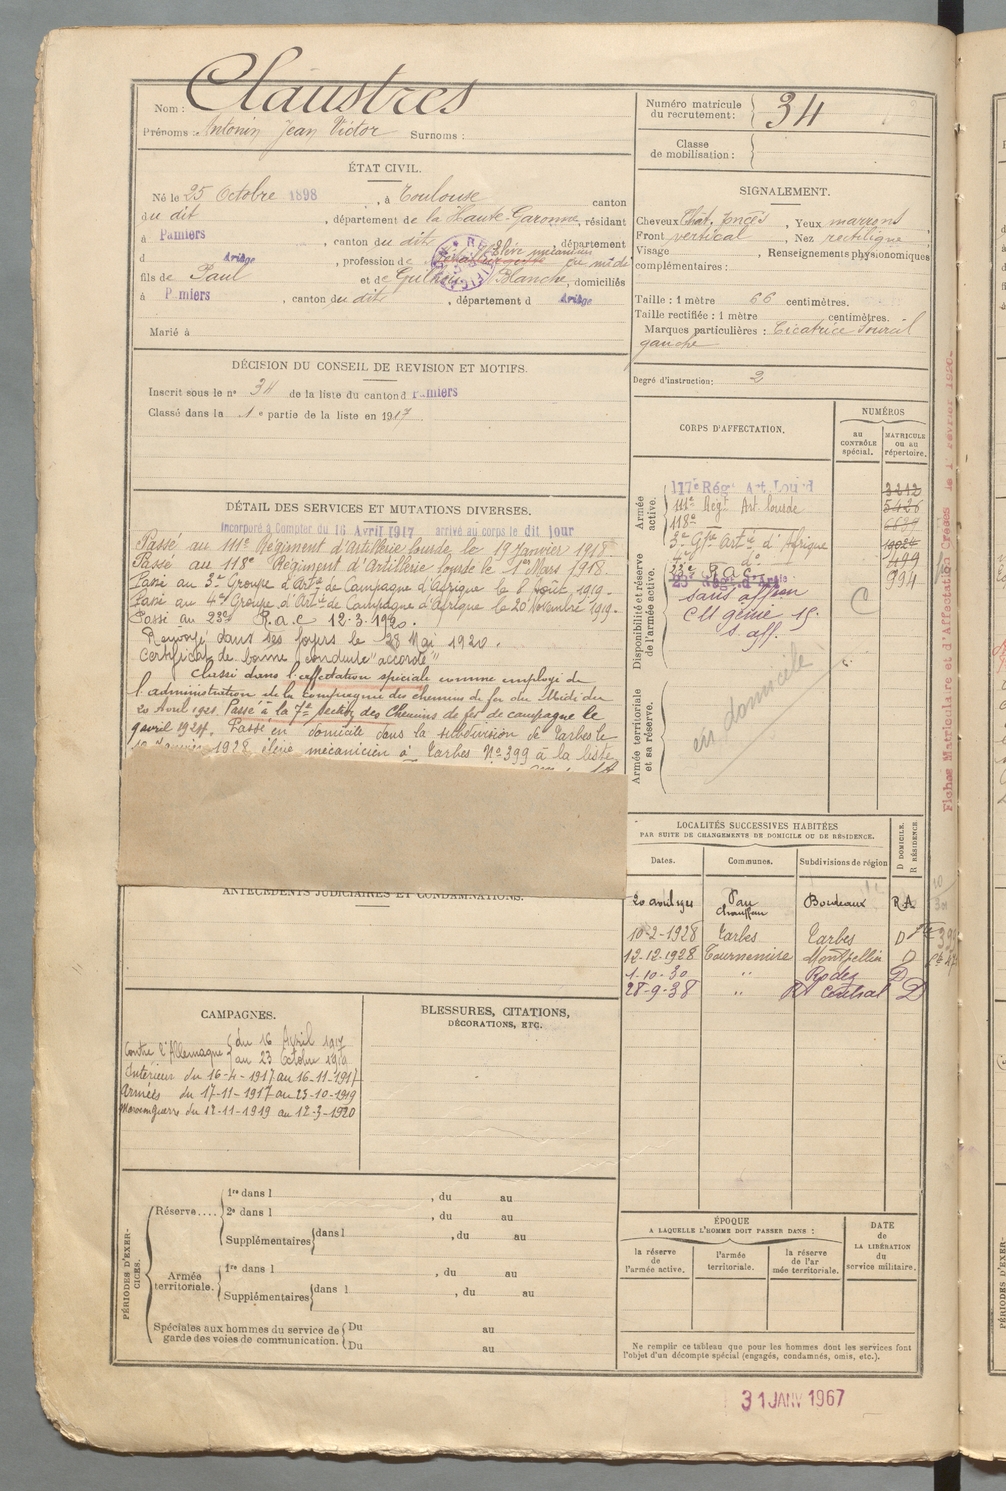 Nom : Claustres
Prénoms : Antonin Jean Victor Surnoms :
Numéro matricule du recrutement : 34
Classe de mobilisation :
ÉTAT CIVIL.
Né le 25 Octobre 1898, à Toulouse canton
du dit, département de la Haute-Garonne, résidant
à Pamiers, canton du dit, département
d Ariège, profession de élève mécanicien au mt de
fils de Paul et de Blanche, domiciliés
à Pamiers, canton du dit, département d Ariège
Marié à
SIGNALEMENT.
Cheveux Chat. foncés, Yeux marrons
Front vertical, Nez rectiligne
Visage , Renseignements physionomiques
complémentaires :
Taille : 1 mètre 66 centimètres.
Taille rectifiée : 1 mètre centimètres.
Marques particulières : Cicatrice sourcil
gauche
Degré d'instruction : 2
DÉCISION DU CONSEIL DE REVISION ET MOTIFS.
Inscrit sous le no 34 de la liste du canton d Pamiers
Classé dans la 1e partie de la liste en 1917
DÉTAIL DES SERVICES ET MUTATIONS DIVERSES.
Incorporé à Compter du 16 Avril 1917 arrivé au corps le dit jour
Passé au 111e Régiment d'Artillerie lourde le 19 Janvier 1918
Passé au 118e Régiment d'Artillerie lourde le 1er Mars 1918.
Passé au 3e Groupe d'Artie de Campagne d'Afrique le 8 Août 1919.
Passé au 4e Groupe d'Artie de Campagne d'Afrique le 20 Novembre 1919.
Passé au 23e R.a.c 12-3-1920.
Renvoyé dans ses foyers le 28 Mai 1920.
Certificat de bonne conduite "accordé"
Classé dans l'affectation spéciale comme employé de
l'administration de la Compagnie des chemins de fer du Midi du
20 Avril 1921. Passé à la 7e Section des Chemins de fer de campagne le
9 avril 1924. Passé en domicile dans la subdivision de Tarbes le
10 Janvier 1928 élève mécanicien à Tarbes No 399 à la liste
CORPS D'AFFECTATION.
NUMÉROS
au CONTRÔLE spécial.
MATRICULE ou au répertoire.
Armée active.
117e Régt Art. Lourd 3212
111e Régt Art lourde 5436
118e
3e Gpe Artie d'Afrique
4e do 499
23e R.a.c. 994
Disponibilité et réserve de l'armée active.
sans affon
C
CM génie 15.
s. aff.
Armée territoriale et sa réserve.
en domicile
Fiches Matriculaire et d'Affectation Créées le 1er Février 1930.
LOCALITÉS SUCCESSIVES HABITÉES
PAR SUITE DE CHANGEMENTS DE DOMICILE OU DE RÉSIDENCE.
Dates. Communes. Subdivisions de région D DOMICILE. R RÉSIDENCE.
20 avril 1921 Pau chauffeur Bordeaux R.A
10-2-1928 Tarbes Tarbes D
12-12-1928 Tournemire Montpellier D
1-10-30 " Rodez D
28-9-38 " Rt Central D
ANTÉCÉDENTS JUDICIAIRES ET CONDAMNATIONS.
CAMPAGNES.
Contre l'Allemagne du 16 Avril 1917
au 23 Octobre 1919
Intérieur du 16-4-1917 au 16-11-1917
Armées du 17-11-1917 au 23-10-1919
Maroc en guerre du 12-11-1919 au 12-3-1920
BLESSURES, CITATIONS,
DÉCORATIONS, ETC.
PÉRIODES D'EXERCICES.
Réserve....
1re dans l , du au
2e dans l , du au
Supplémentaires dans l , du au
Armée territoriale.
1re dans l , du au
Supplémentaires dans l , du au
Spéciales aux hommes du service de garde des voies de communication.
Du au
Du au
ÉPOQUE
A LAQUELLE L'HOMME DOIT PASSER DANS :
la réserve de l'armée active.
l'armée territoriale.
la réserve de l'armée territoriale.
DATE de LA LIBÉRATION du service militaire.
Ne remplir ce tableau que pour les hommes dont les services font
l'objet d'un décompte spécial (engagés, condamnés, omis, etc.).
31 JANV 1967